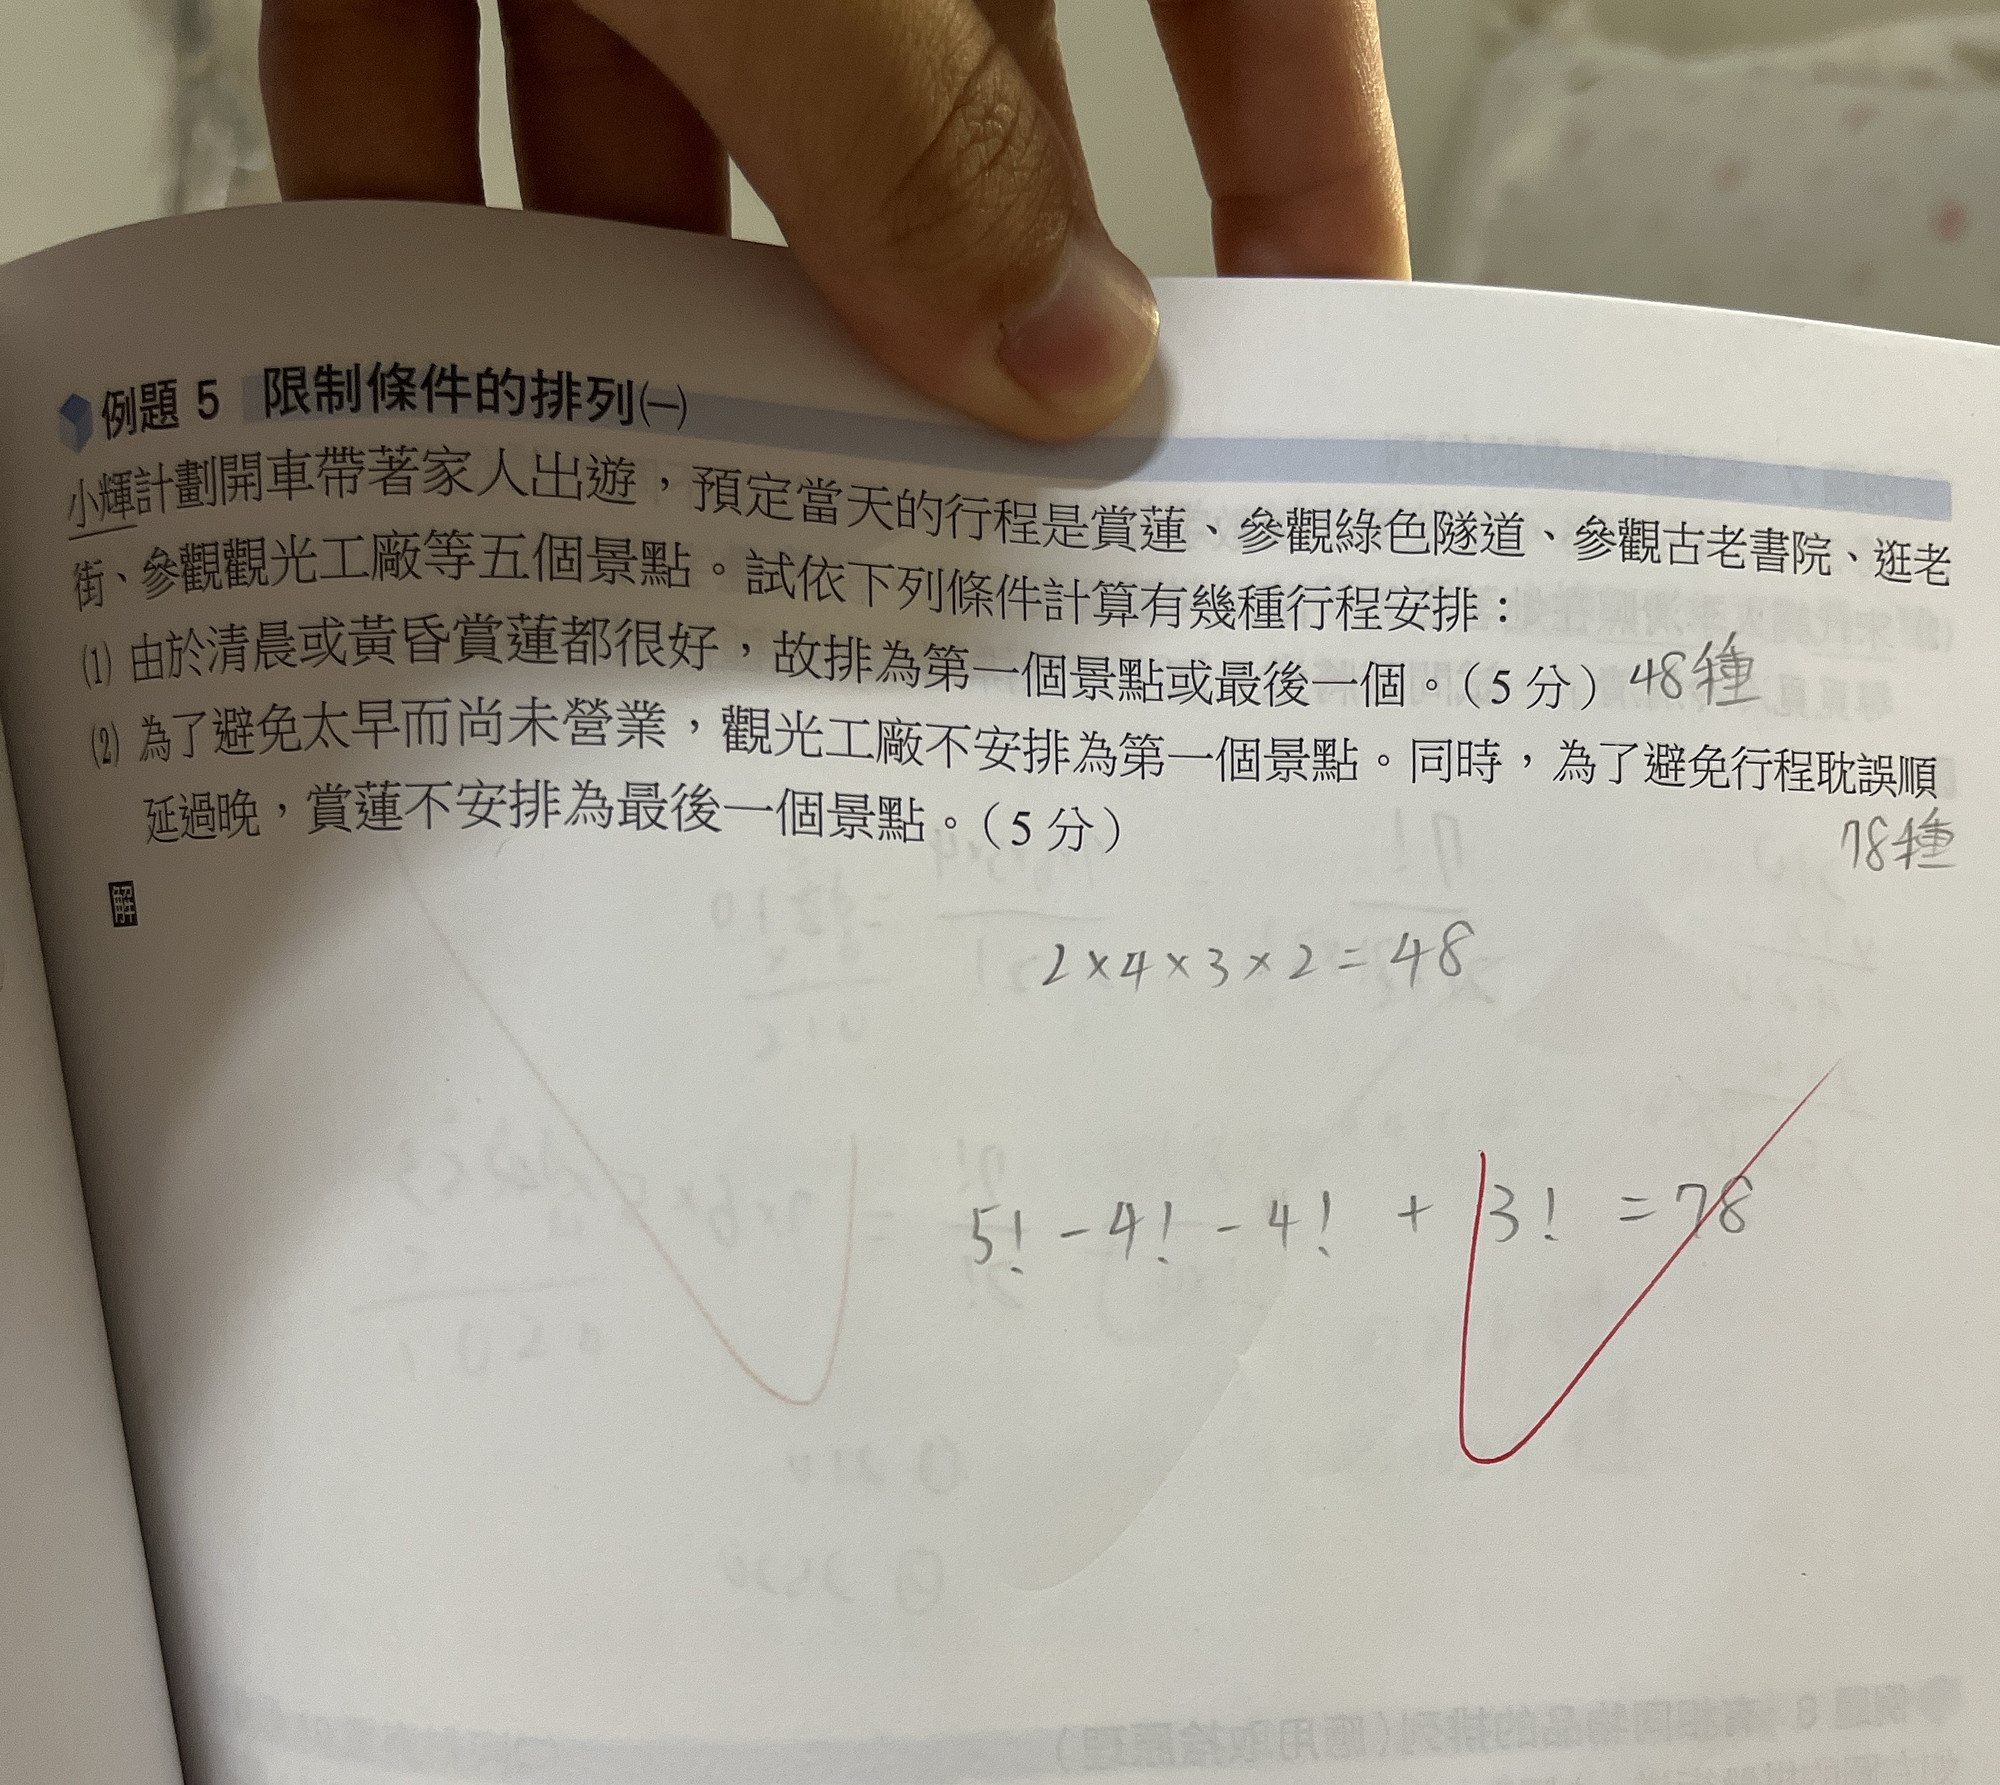 例題 5 限制條件的排列㈠
小輝計劃開車帶著家人出遊，預定當天的行程是賞蓮、參觀綠色隧道、參觀古老書院、逛老
街、參觀觀光工廠等五個景點。試依下列條件計算有幾種行程安排：
⑴ 由於清晨或黃昏賞蓮都很好，故排為第一個景點或最後一個。（5 分）48種
⑵ 為了避免太早而尚未營業，觀光工廠不安排為第一個景點。同時，為了避免行程耽誤順
延過晚，賞蓮不安排為最後一個景點。（5 分）
78種
解
2×4×3×2=48
5! - 4! - 4! + 3! = 78
例題 8 有相同物品的排列（應用取捨原理）